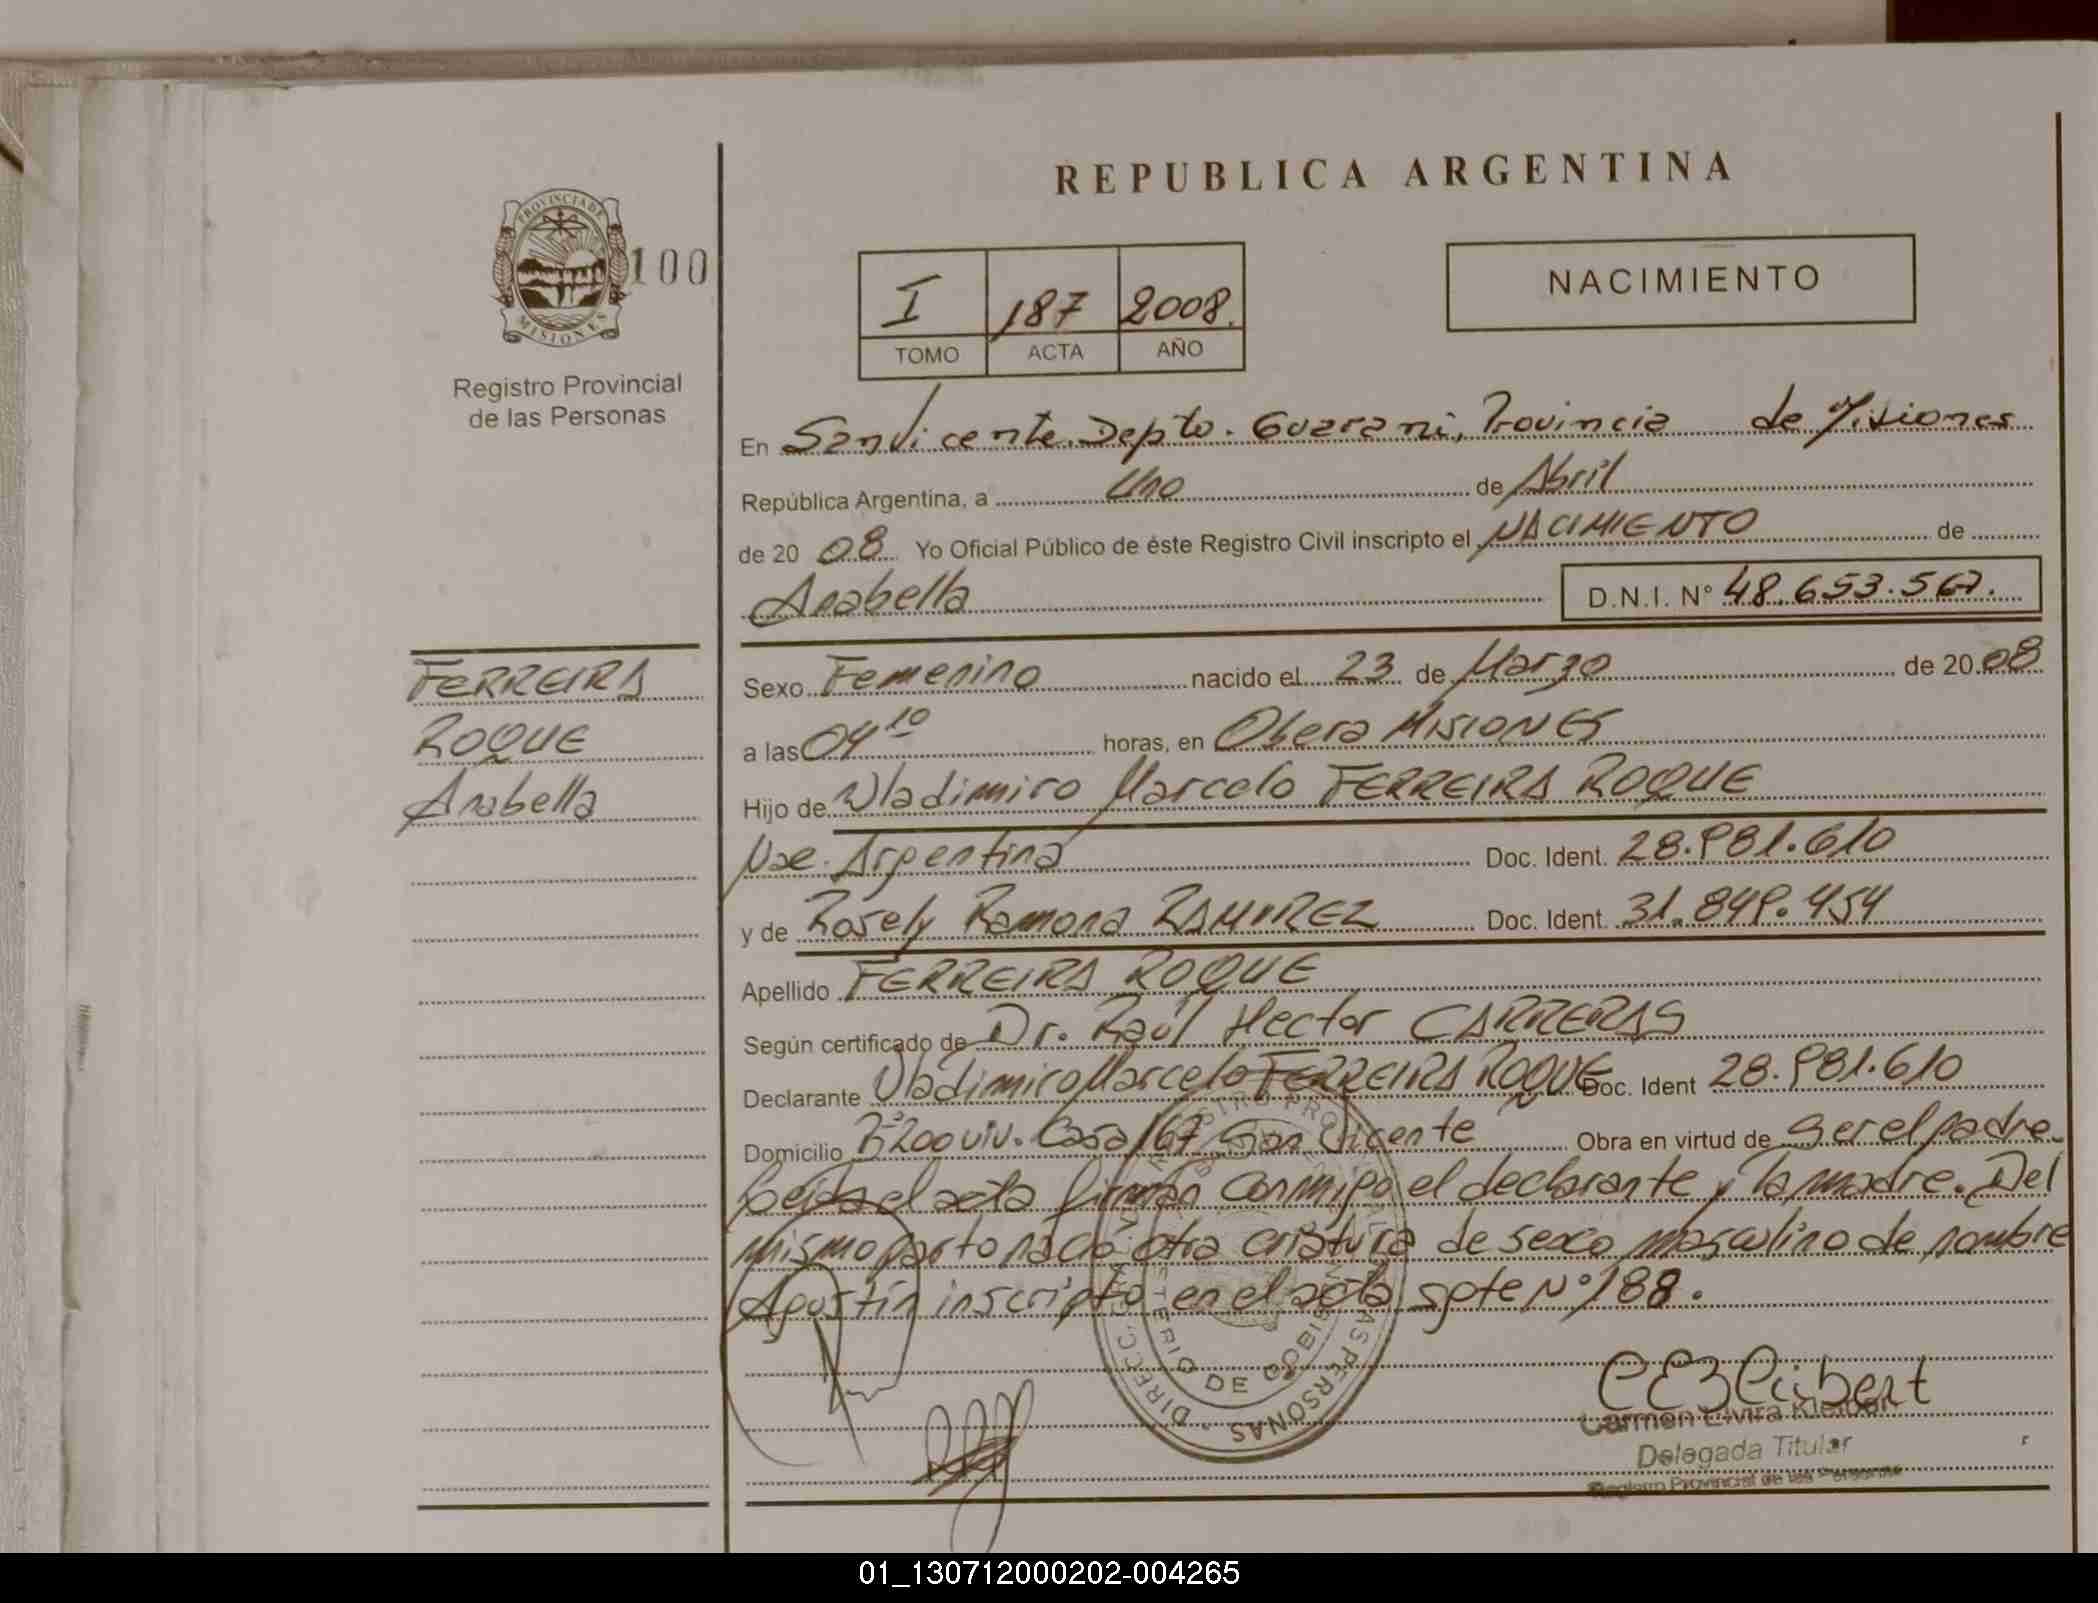 REPUBLICA ARGENTINA
PROVINCIA DE
MISIONES
100
Registro Provincial
de las Personas
I 187 2008.
TOMO ACTA AÑO
NACIMIENTO
En San Vicente. Depto. Guarani, Provincia de Misiones
República Argentina, a Uno de Abril
de 20 08 Yo Oficial Público de éste Registro Civil inscripto el NACIMIENTO de
Anabella D.N.I. N° 48.653.567.
FERREIRA
ROQUE
Anabella
Sexo Femenino nacido el 23 de Marzo de 20 08
a las 04 10 horas, en Obera MISIONES
Hijo de Wladimiro Marcelo FERREIRA ROQUE
Nac. Argentina Doc. Ident. 28.981.610
y de Rosely Ramona RAMIREZ Doc. Ident. 31.849.454
Apellido FERREIRA ROQUE
Según certificado de Dr. Raúl Hector CARRERAS
Declarante Wladimiro Marcelo FERREIRA ROQUE Doc. Ident 28.981.610
Domicilio B° 200 viv. Casa 167 San Vicente Obra en virtud de ser el padre.
el acta firman conmigo el declarante y la madre. Del
mismo parto nació otra criatura de sexo masculino de nombre
Agustín inscripto en el acta sgte N° 188.
Carmen Elvira Kleibert
Delegada Titular
Registro Provincial de las Personas
01_130712000202-004265